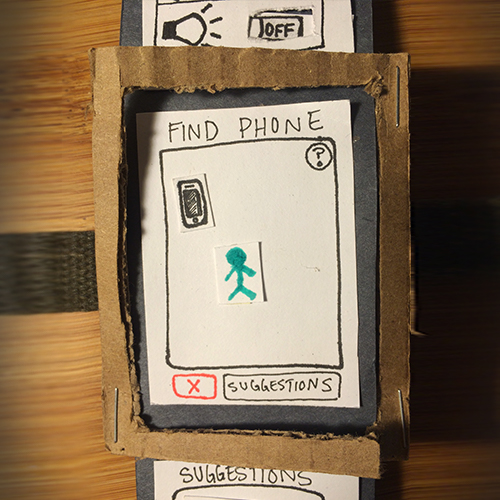 OFF
FIND PHONE
?
X
SUGGESTIONS
SUGGESTIONS